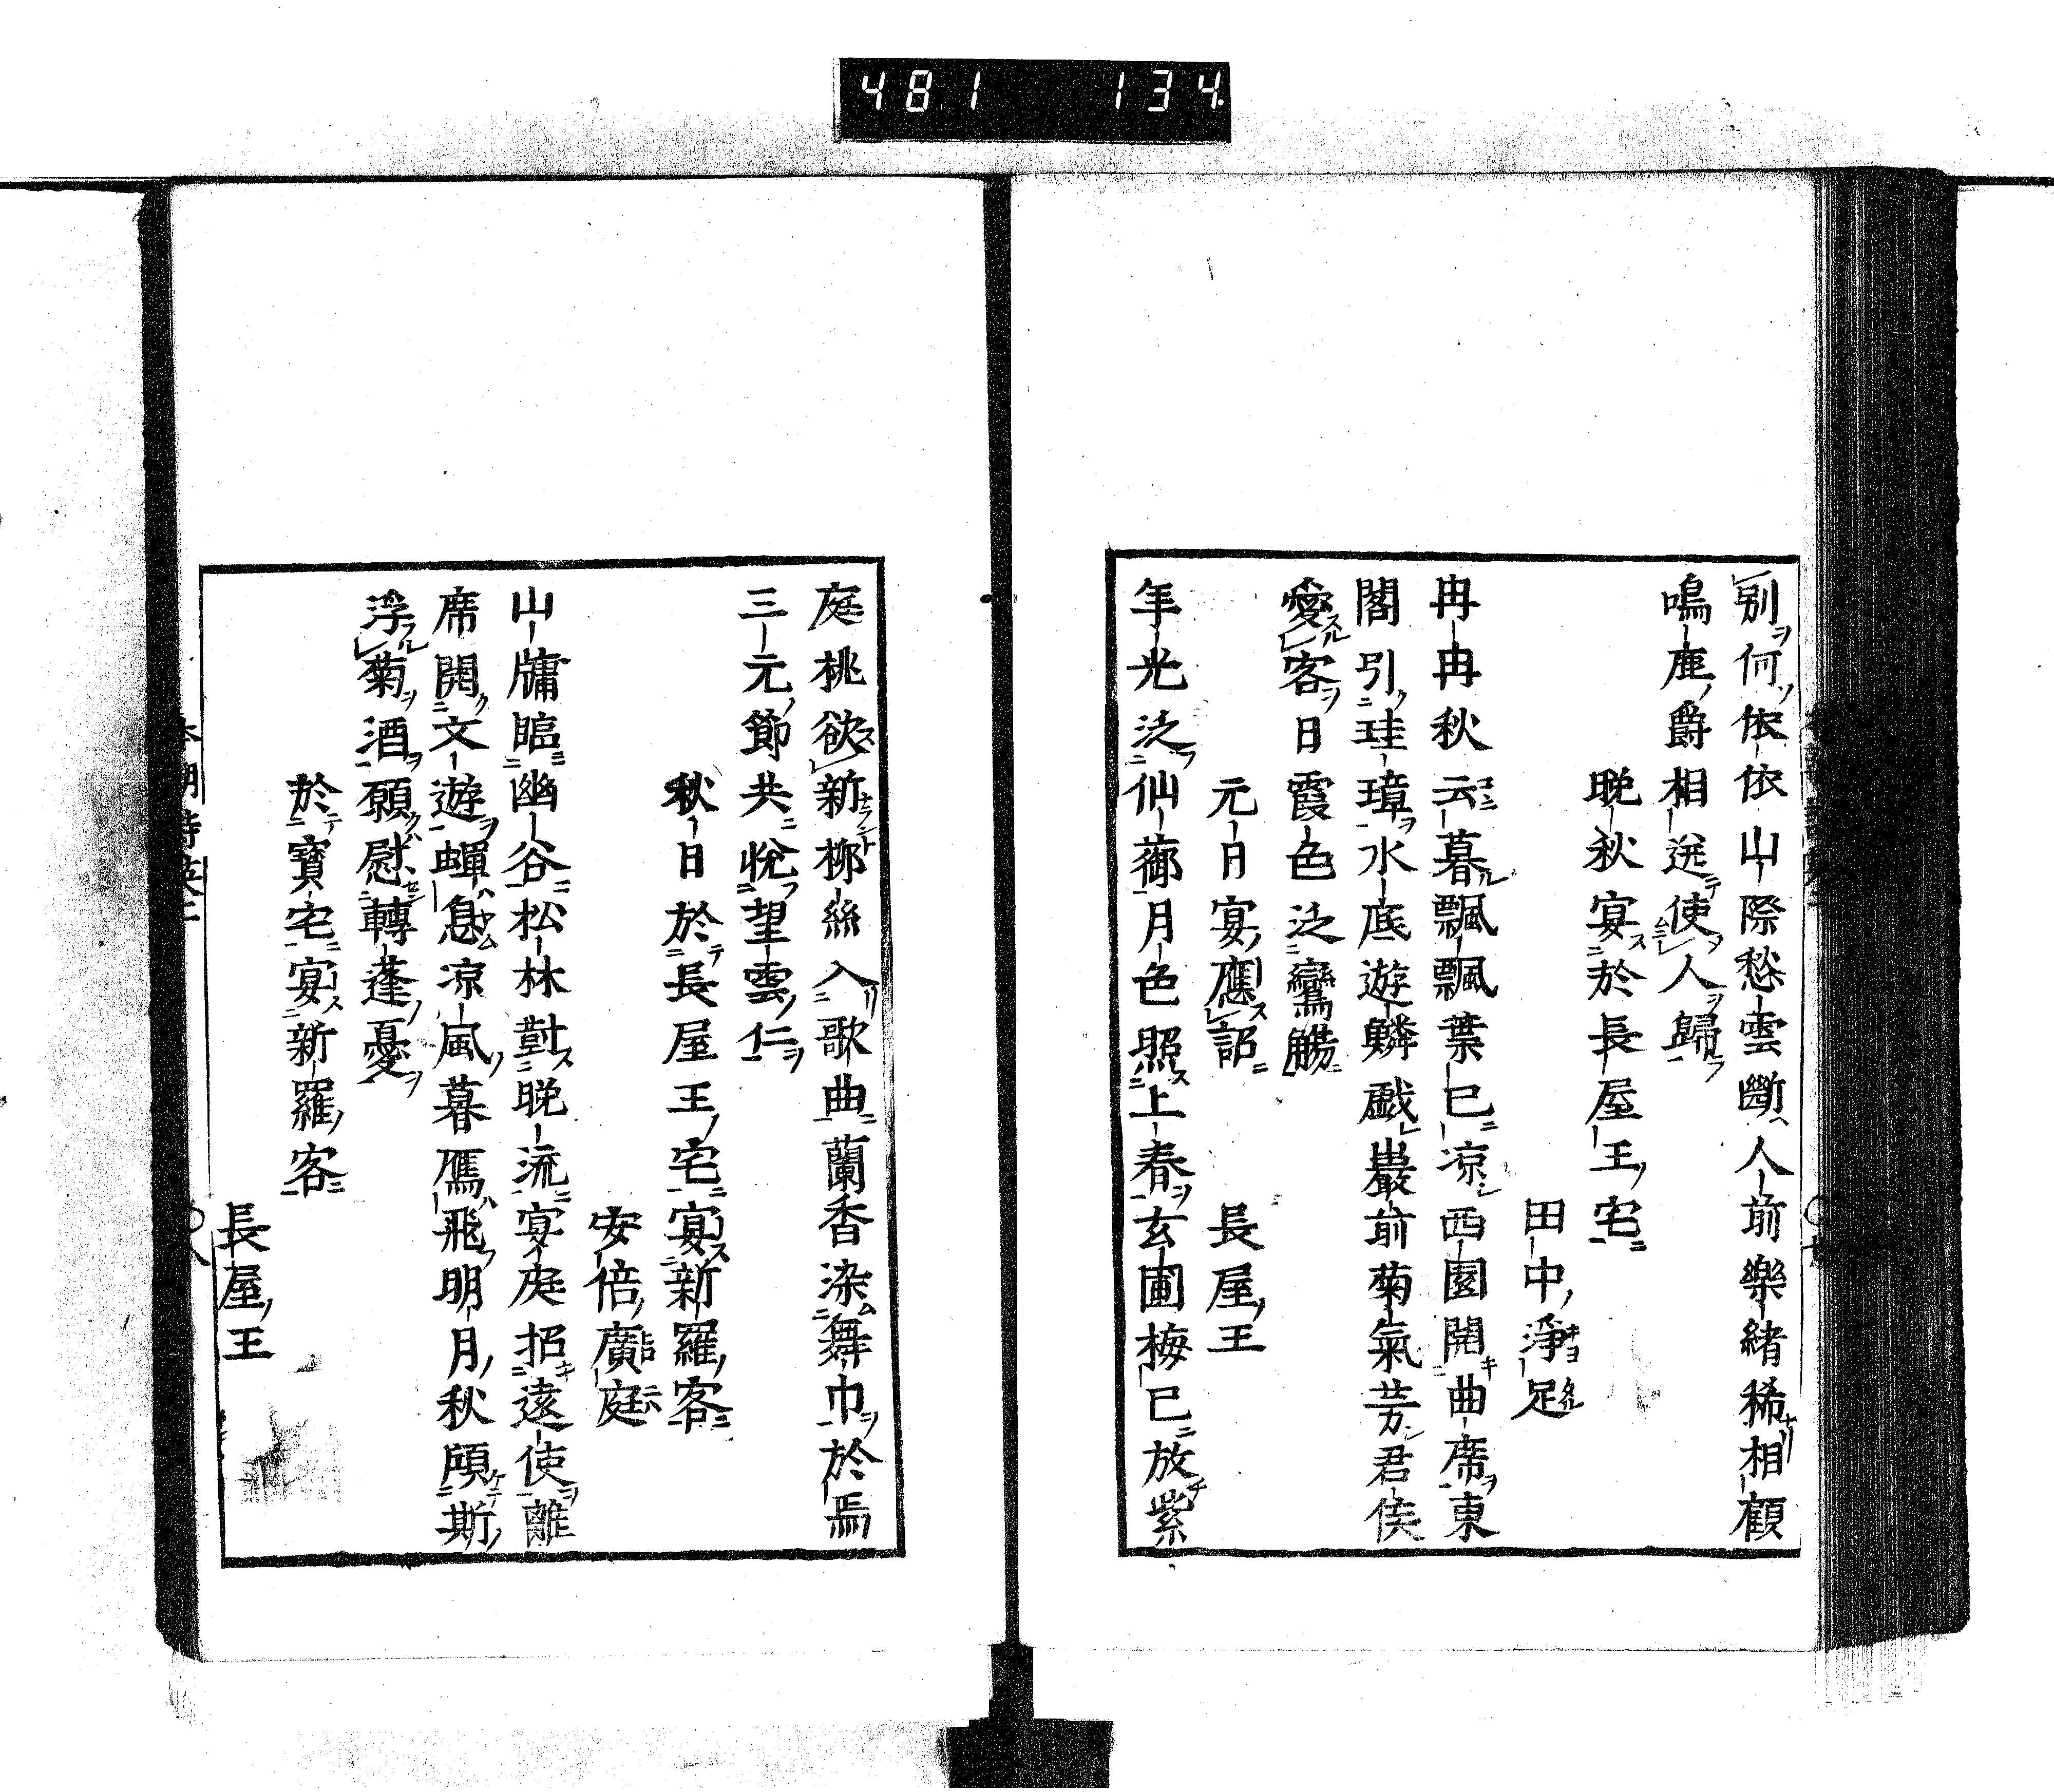 481 134
別何依依山際愁雲斷人前樂緒稀相顧
鳴鹿爵相送使人歸
晩秋宴於長屋王宅
田中淨足
冉冉秋云暮飄飄葉已凉西園開曲席東
閣引珪璋水底遊鱗戲巖前菊氣芳君侯
愛客日霞色泛鸞觴
元日宴應詔
長屋王
年光泛仙蘅月色照上春玄圃梅已放紫
庭桃欲新柳絲入歌曲蘭香染舞巾於焉
三元節共悅望雲仁
秋日於長屋王宅宴新羅客
安倍廣庭
山牖臨幽谷松林對晩流宴庭招遠使離
席開文遊蟬息凉風暮鴈飛明月秋傾斯
浮菊酒願慰轉蓬憂
於寶宅宴新羅客
長屋王
本朝詩英二